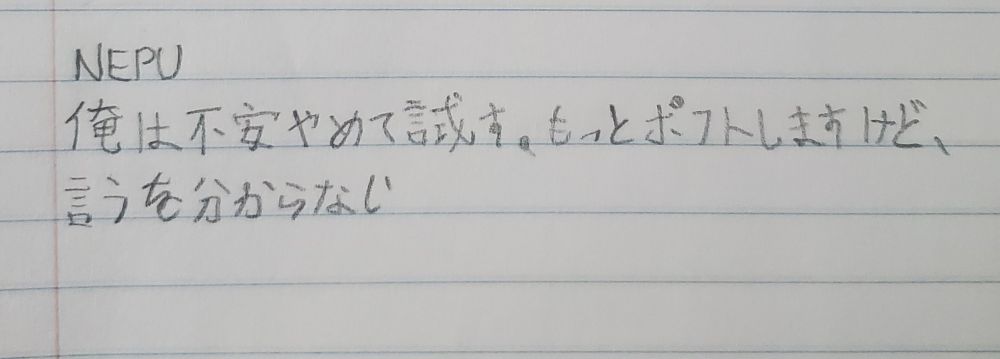 NEPU
俺は不安やめて試す。もっとポフトしますけど、
言うを分からない